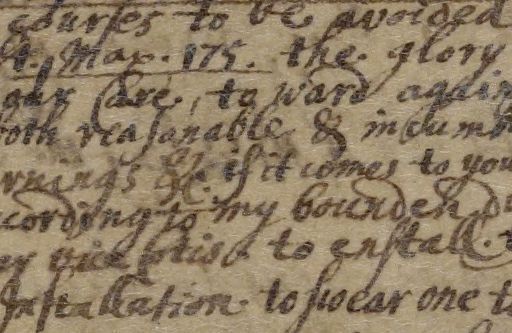 courses to be avoided
t. Max. 175. the glory
gar care, to ward again
both reasonable & incumb
rnings &c. if it comes to you
cording to my bounden du
to enstall.
Installation. to swear one t